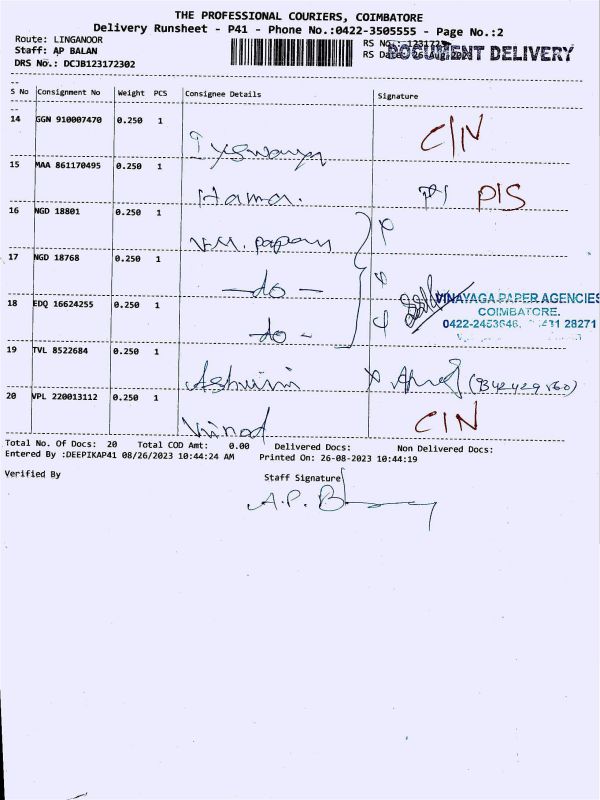 THE PROFESSIONAL COURIERS, COIMBATORE
Delivery Runsheet - P41 - Phone No.:0422-3505555 - Page No.:2
Route: LINGANOOR
Staff: AP BALAN
DRS No.: DCJB123172302
RS No.:
RS Date: 26-Aug-2023
DOCUMENT DELIVERY
S No Consignment No Weight PCS Consignee Details Signature
14 GGN 910007470 0.250 1 C/N
15 MAA 861170495 0.250 1 Hama. P/S
16 NGD 18801 0.250 1 V.M. papery
17 NGD 18768 0.250 1 -do-
VINAYAGA PAPER AGENCIES
COIMBATORE.
18 EDQ 16624255 0.250 1 -do-
0422-2453646, 28271
19 TVL 8522684 0.250 1 Ashwini
20 VPL 220013112 0.250 1 Vinod C/N
Total No. Of Docs: 20 Total COD Amt: 0.00 Delivered Docs: Non Delivered Docs:
Entered By :DEEPIKAP41 08/26/2023 10:44:24 AM Printed On: 26-08-2023 10:44:19
Verified By Staff Signature
A.P. B